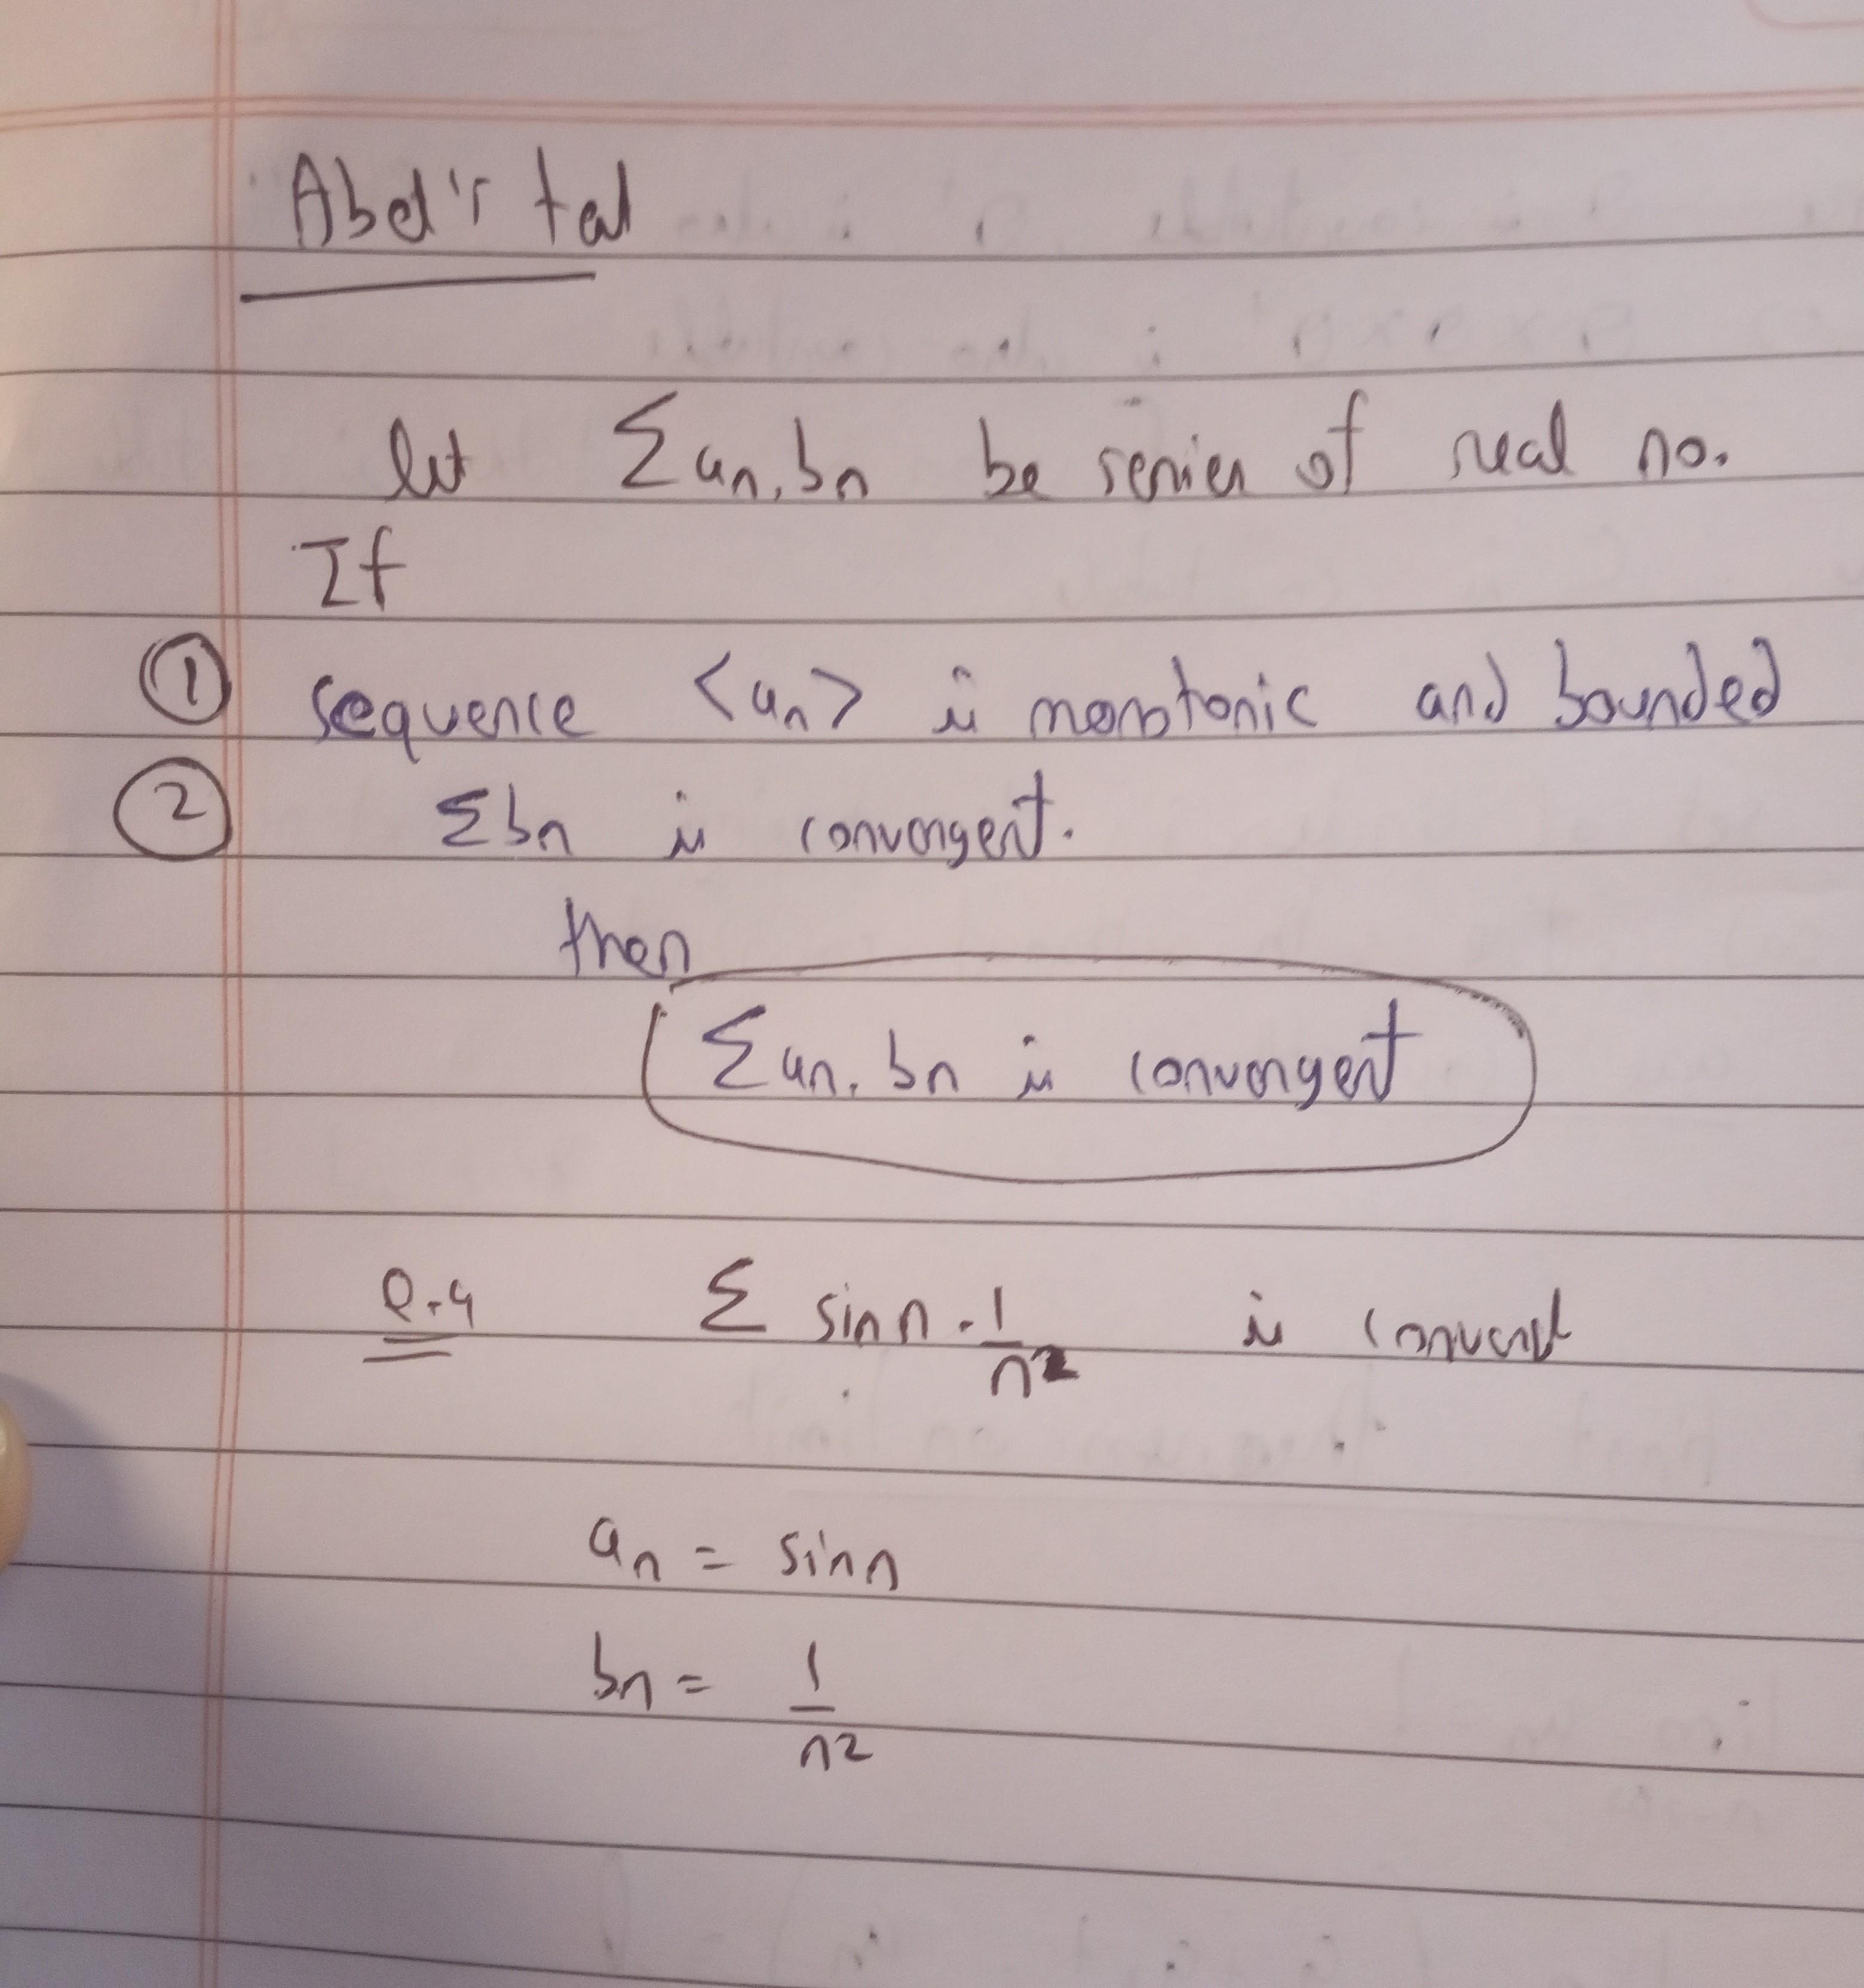 Abel's test
let Σan.bn be series of real no.
If
① sequence <an> is monotonic and bounded
② Σbn is convergent.
then
Σan.bn is convergent
e.g Σ sinn . 1/n² is convernt
an = sinn
bn = 1/n²